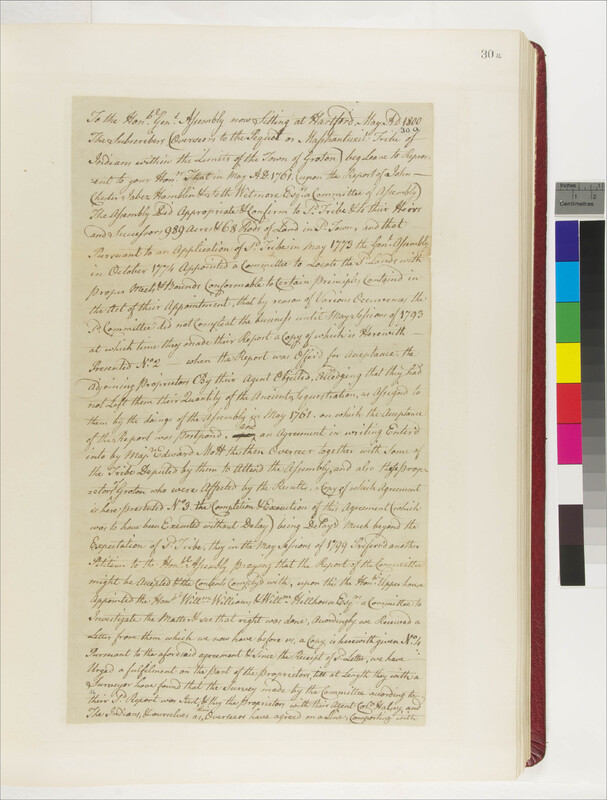 30a
To the Honble Genl Assembly now Sitting at Hartford May AD 1800
30a
The Subscribers (Overseers to the Pequot or Mashantucket Tribe of
Indians within the Limits of the Town of Groton) beg leave to Repre-
sent to your Honrs That in May AD 1761 (upon the Report of a John
Chester Jabez Hamlin & Seth Wetmore Esqrs a Committee of Assembly)
The Assembly Did Appropriate & Confirm to sd Tribe & to their Heirs
and Successors 989 Acres & 68 Rods of Land in sd Town, and that
Pursuant to an Application of sd Tribe in May 1773 the Genl Assembly
in October 1774 Appointed a Committee to Locate the sd Lands with
proper Meets & Bounds Conformable to Certain Principles Contained in
the Act of their Appointment, that by reason of Various Occurrences the
sd Committee did not Compleat the business until May Sessions of 1793
at which time they made their Report a Copy of which is Herewith
Presented No 2 — when the Report was Offered for Acceptance the
Adjoining Proprietors (By their Agent) Objected, Alledging that they had
not Left them their Quantity of the Ancient Sequestration, as Assigned to
them by the doings of the Assembly in May 1761. on which the Acceptance
of the Report was Postpond, and an Agreement in writing Enterd
into by Majr Edward Mott the then Overseer together with Some of
the Tribe Deputed by them to Attend the Assembly, and also those Prop-
rietors of Groton who were Affected by the Results, a Copy of which Agreement
is here presented No 3. the Completion & Execution of this Agreement (which
was to have been Executed without Delay) being Delayd Much beyond the
Expectation of sd Tribe, they in the May Sessions of 1799 Prefered another
Petition to the Honble Assembly praying that the Report of the Committee
might be Accepted & the Contents Complyd with, upon this the Honble Upper house
Appointed the Honble Willm Williams, & Willm Hillhouse Esqrs a Committee to
Investigate the Matter & see that right was done, Accordingly we Received a
Letter from them which we now have before us, a Copy is herewith given No 4
Pursuant to the aforesaid agreement & Since the Receipt of sd Letter, we have
Urged a fulfilment on the part of the Proprietors, till at Length they with a
Surveyor have found that the Survey made by the Committee according to
their sd Report was Just, & they the Proprietors with their Agent Colo and
The Indians, & ourselves as Overseers have agreed on a Line, Comporting with